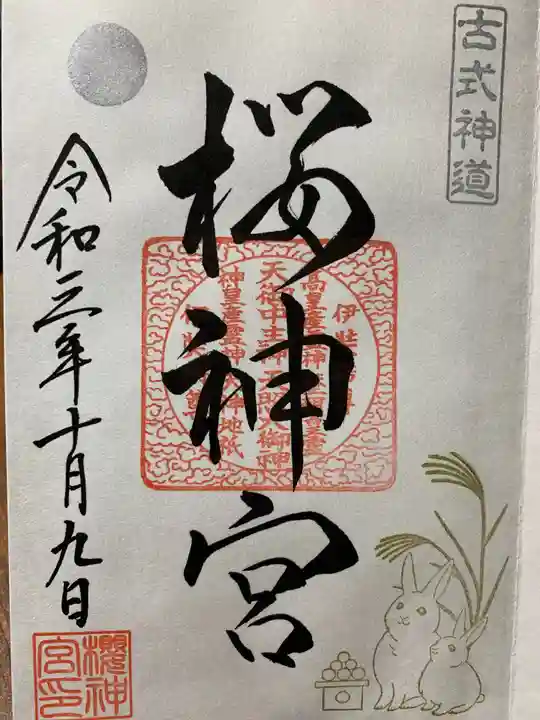 古式神道
桜神宮
天御中主神
令和三年十月九日
櫻神
宮印